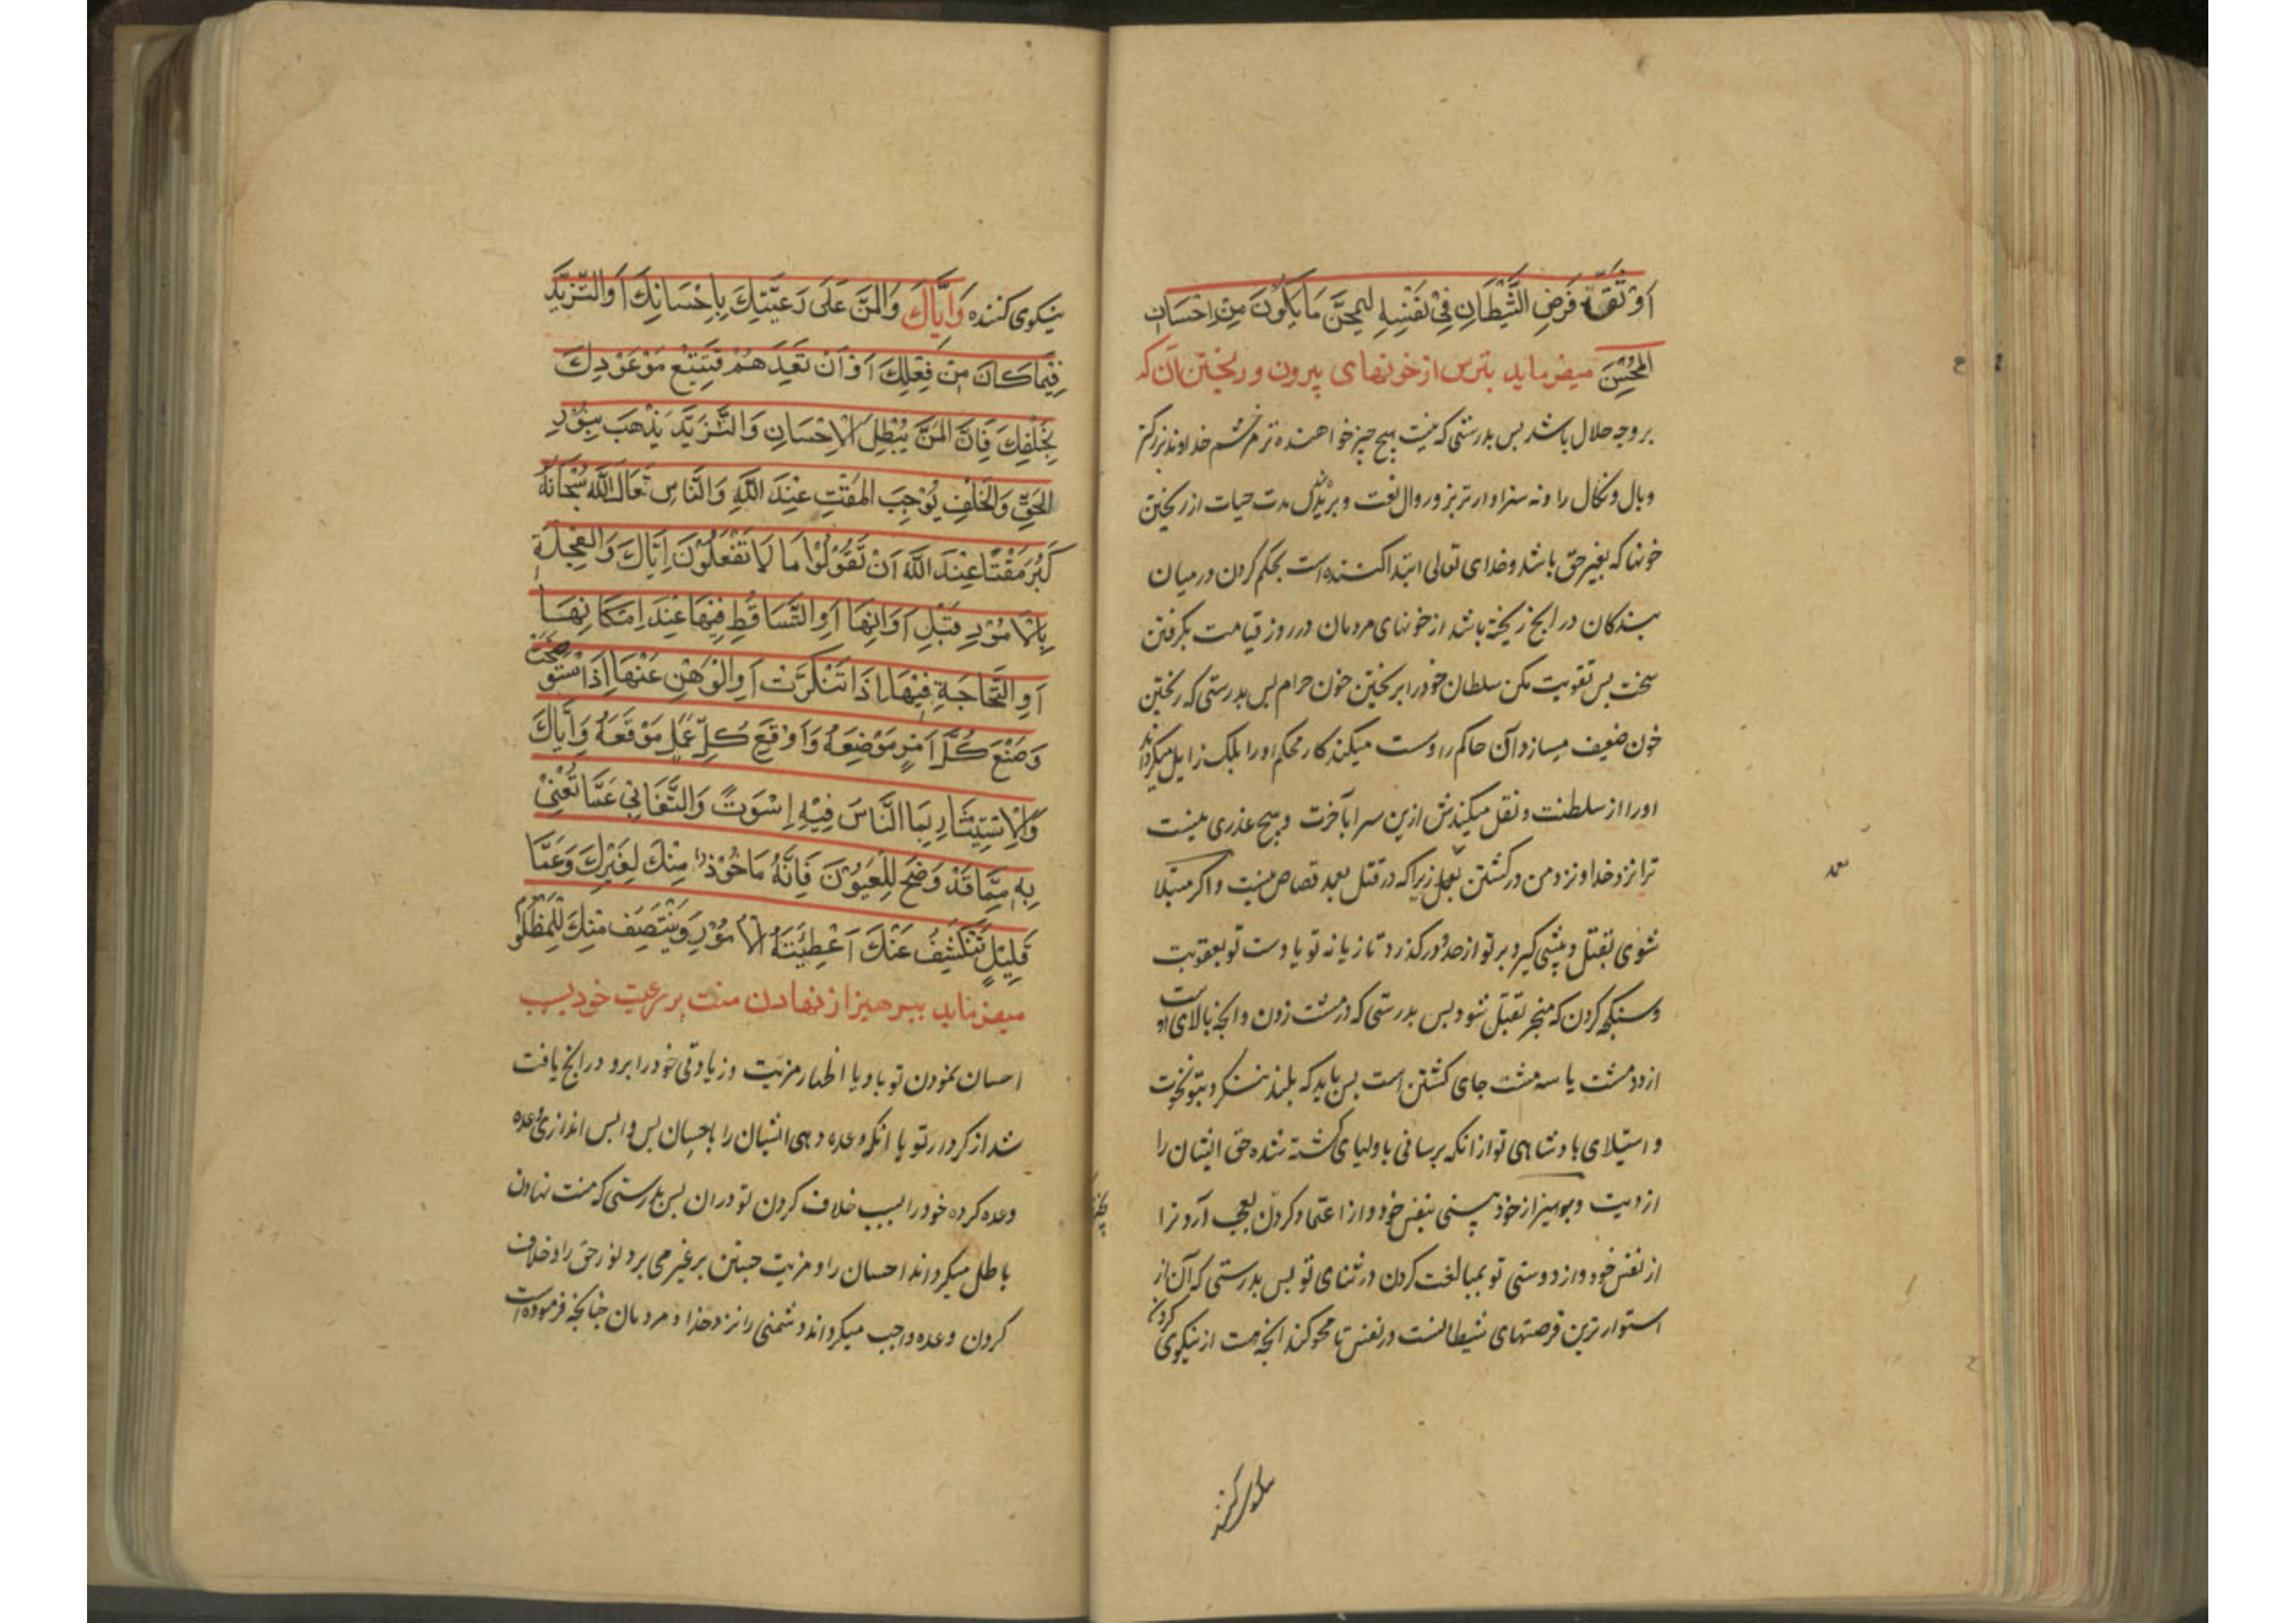 اَوْثَقِ فُرَصِ الشَّيْطَانِ فِيْ نَفْسِهِ لِيَمْحَقَ مَا يَكُوْنَ مِنْ اِحْسَانِ
المُحْسِنَ ميفرمايد بترس از خونهاى پيرون و ريختن آن كه
بر وجه حلال باشد پس بدرستى كه نيست هيچ چيز خواهنده تر مر خشم خداوند بزركتر
وبال و نكال را و نه سزاوارتر بزوال نعمت و بريدن مدت حيات از ريختن
خونها كه بغير حق باشد و خداى تعالى ابتدا كننده است بحكم كردن در ميان
بندكان در انچ ريخته باشد از خونهاى مردمان در روز قيامت بكرفتن
سخت پس تقويت مكن سلطان خود را بريختن خون حرام پس بدرستى كه ريختن
خون ضعيف ميسازد آن حاكم را و سست ميكند كار محكم او را بلك زايل ميكرداند
او را از سلطنت و نقل ميكندش ازين سرا بآخرت و هيچ عذرى نيست
ترا نزد خدا و نزد من در كشتن بعمد زيرا كه در قتل بعمد قصاص نيست و اكر مبتلا
شوى بقتل و پيشى كيرد بر تو از حد و در كذرد تازيانه تو يا دست تو بعقوبت
و سنكجه كردن كه منجر بقتل شود پس بدرستى كه در مشت زدن و انچه بالاى اوست
از دو مشت يا سه مشت جاى كشتن است پس بايد كه بلند ننكرد بتو نخوت
و استيلاى پادشاهى تو از انكه برسانى باولياى كشته شده حق ايشان را
از ديت و بپرهيز از خود پسنى بنفس خود و از اعتماد كردن بعجب آرد ترا
از نفس خود و از دوستى تو بمبالغت كردن در ثناى تو پس بدرستى كه آن از
استوارترين فرصتهاى شيطانست در نفس تا محو كند انچه هست از نيكوى كردن
نيكوى كننده وَاِيَّاكَ وَالمَنَّ عَلَى رَعِيَّتِكَ بِاِحْسَانِكَ اَوِالتَّزَيُّدَ
فِيْمَا كَانَ مِنْ فِعْلِكَ اَوْ اَنْ تَعِدَهُمْ فَتُتْبِعَ مَوْعُوْدِكَ
بِخُلْفِكَ فَاِنَّ المَنَّ يُبْطِلُ الْاِحْسَانِ وَالتَّزَيُّدَ يَذْهَبَ بِنُوْرِ
الحَقِّ وَالخُلْفِ يُوْجِبَ المَقْتَ عِنْدَ اللّٰهِ وَالنَّاسِ تَعَالَ اللّٰهَ سُبْحَانَهُ
كَبُرَ مَقْتًا عِنْدَ اللّٰهِ اَنْ تَقُوْلُوْا مَا لَا تَفْعَلُوْنَ اِيَّاكَ وَالعَجَلَةِ
بِالْاُمُوْرِ قَبْلِ اَوَانِهَا اَوِالتَّسَاقُطِ فِيْهَا عِنْدَ اِمْكَانِهَا
اَوِ اللَّجَاجَةِ فِيْهَا اِذَا تَنَكَّرَتْ اَوِالوَهْنِ عَنْهَا اِذَا اسْتَوْضَحَتْ
وَضَعْ كُلَّ اَمْرٍ مَوْضِعَهُ وَاَوْقِعْ كُلِّ عَمَلٍ مَوْقِعَهُ وَاِيَّاكَ
وَالْاِسْتِيْثَارِ بِمَا النَّاسَ فِيْهِ اِسْوَتٌ وَالتَّغَابِي عَمَّا تُعْنَى
بِهِ مِمَّا قَدْ وَضَحَ لِلْعُيُوْنَ فَاِنَّهُ مَاخُوْذٌ مِنْكَ لِغَيْرِكَ وَعَمَّا
قَلِيْلٍ تَنْكَشِفُ عَنْكَ اَغْطِيَتَهُ الْاُمُوْرِ وَيُنْتَصَفُ مِنْكَ لِلْمَظْلُوْمِ
ميفرمايد بپرهيز از نهادن منت بر رعيت خود بسبب
احسان نمودن تو با و يا اظهار مزيت و زيادتى خود را برو در انچ يافت
شد از كردار تو يا انكه وعده دهى ايشان را باحسان پس واپس اندازى وعده
وعده كرده خود را بسبب خلاف كردن تو دران پس بدرستى كه منت نهادن
باطل ميكرداند احسان را و مزيت جستن بر غير مى برد نور حق را و خلاف
كردن وعده واجب ميكرداند دشمنى را نزد خدا و مردمان چنانچه فرموده است